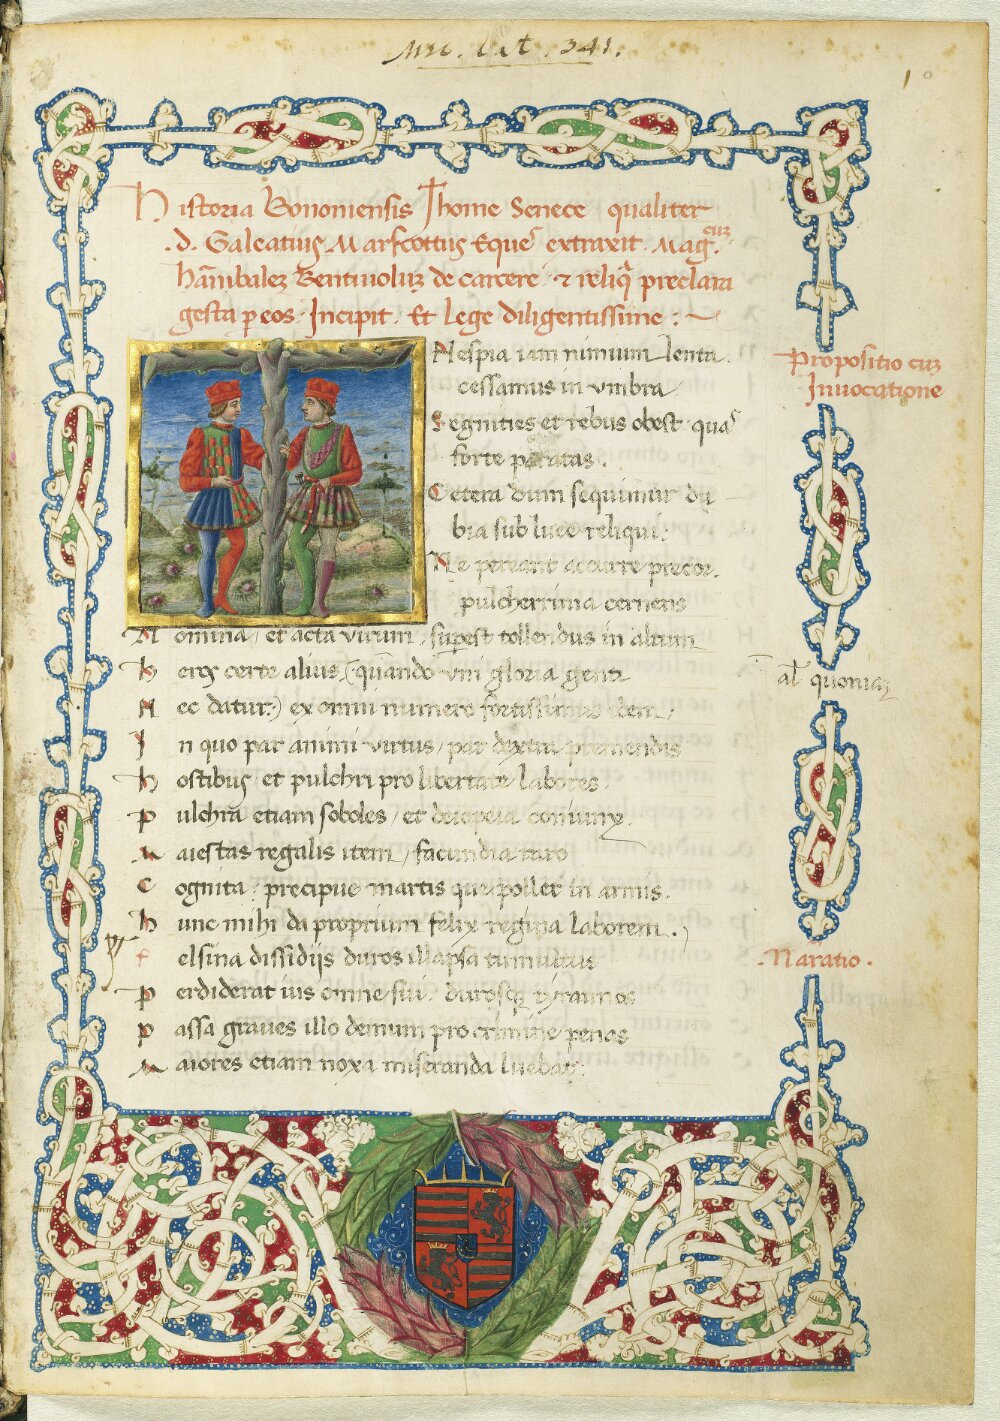 Mss. Lat. 341.
1
Historia Bononiensis Thome Senece qualiter
.d. Galeatius Marscottus Eques extraxit Mag.cuz
Hānibalez Bentiuoluz de carcere & reliq̄ preclara
gesta p eos Incipit. Et Lege diligentissime :~
Nespia iam nimium lenta
cessamus in vmbra
Segnities et rebus obest quas
forte paratas.
Cetera dum sequimur du
bia sub luce reliqui:
Ne pereant accurre precor.
pulcherrima cernens
Propositio cuz
Inuocatione
Nomina / et acta virum / supest tollendus in altum
al' quoniaz
heros certe alius, (quando vni gloria genti
Nec datur:) ex omni numero fortissimus idem /
In quo par animi virtus / par dextra premendis
hostibus et pulchri pro libertate labores:
Pulchra etiam soboles / et deiopeia coniunx.
Maiestas regalis item / facundia raro
Cognita: precipue martis que pollet in armis.
hunc mihi da proprium felix regina laborem.
felsina dissidijs duros illapsa tumultus
.Naratio.
Perdiderat ius omne sui: durosq; tyrannos
Passa graues illo demum pro crimine penas
Maiores etiam noxa miseranda luebat: